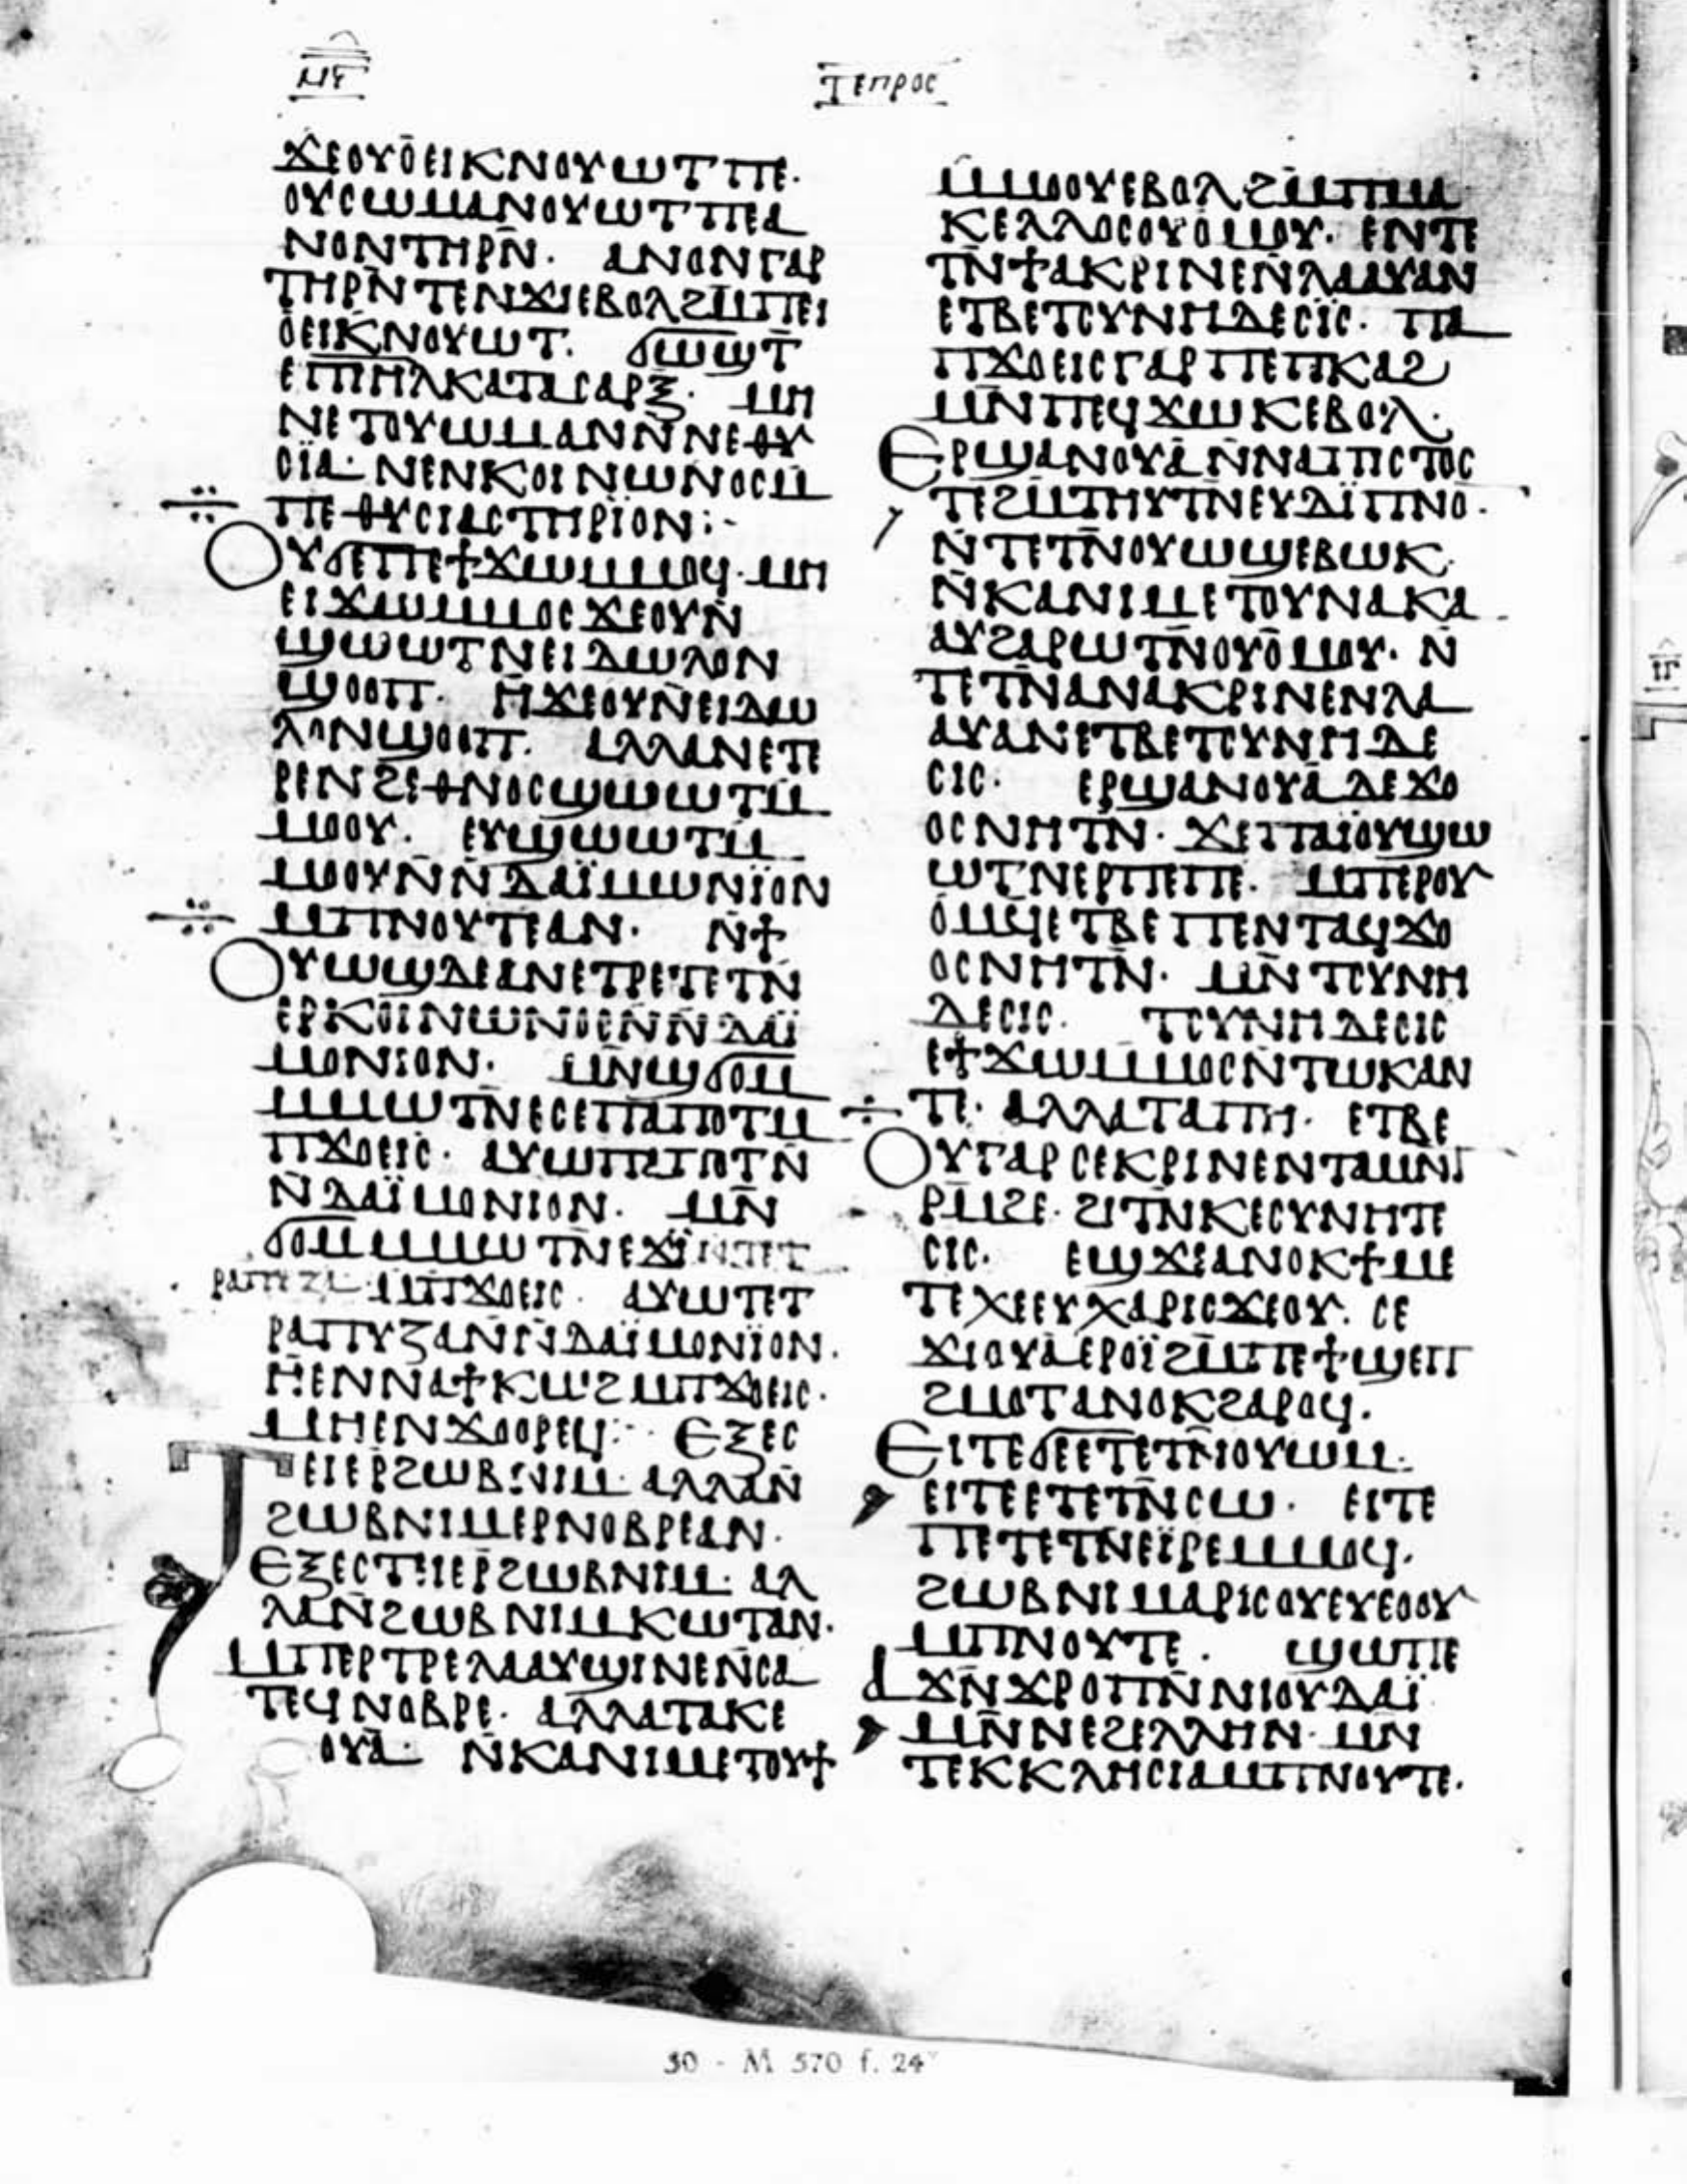 ⲙⲋ
ⲧⲉⲡⲣⲟⲥ
ϫⲉⲟⲩⲟ̄ⲉⲓⲕⲛⲟⲩⲱⲧⲡⲉ·
ⲟⲩⲥⲱⲙⲁⲛⲟⲩⲱⲧⲡⲉⲁ
ⲛⲟⲛⲧⲏⲣⲛ̄· ⲁⲛⲟⲛⲅⲁⲣ
ⲧⲏⲣⲛ̄ⲧⲉⲛϫⲓⲉⲃⲟⲗϩⲙ̄ⲡⲉⲓ
ⲟ̄ⲉⲓⲕⲛⲟⲩⲱⲧ· ϭⲱϣⲧ̄
ⲉⲡⲓⲏ̄ⲗ̄ⲕⲁⲧⲁⲥⲁⲣⲝ̄· ⲙⲏ
ⲛⲉⲧⲟⲩⲱⲙⲁⲛⲛ̄ⲛⲉⲑⲩ
ⲥⲓ̈ⲁ· ⲛⲉⲛⲕⲟⲓⲛⲱⲛⲟⲥⲙ̄
ⲡⲉⲑⲩⲥⲓⲁⲥⲧⲏⲣⲓ̈ⲟⲛ:-
ⲟⲩϭⲉⲡⲉϯϫⲱⲙⲙⲟϥ· ⲙⲏ
ⲉⲓϫⲱⲙⲙⲟⲥϫⲉⲟⲩⲛ̄
ϣⲱⲱⲧⲛⲉⲓⲇⲱⲗⲟⲛ
ϣⲟⲟⲡ· ⲏ̄ϫⲉⲟⲩⲛ̄ⲉⲓⲇⲱ
ⲗⲟⲛϣⲟⲟⲡ· ⲁⲗⲗⲁⲛⲉⲧⲉ
ⲣⲉⲛϩⲉⲑⲛⲟⲥϣⲱⲱⲧⲙ̄
ⲙⲟⲟⲩ· ⲉⲩϣⲱⲱⲧⲙ̄
ⲙⲟⲟⲩⲛ̄ⲛ̄ⲇⲁⲓ̈ⲙⲱⲛⲓ̈ⲟⲛ
ⲙ̄ⲡⲛⲟⲩⲧⲉⲁⲛ· ⲛ̄ϯ
ⲟⲩⲱϣⲇⲉⲁⲛⲉⲧⲣⲉⲧⲉⲧⲛ̄
ⲉⲣⲕⲟⲓⲛⲱⲛⲟⲥⲛ̄ⲛ̄ⲇⲁⲓ̈
ⲙⲟⲛⲓⲟⲛ· ⲙⲛ̄ϣϭⲟⲙ
ⲙⲙⲱⲧⲛⲉⲥⲉⲡⲁⲡⲟⲧⲙ̄
ⲡϫⲟⲉⲓⲥ· ⲁⲩⲱⲡⲁⲡⲟⲧⲛ̄
ⲛ̄ⲇⲁⲓ̈ⲙⲟⲛⲓⲟⲛ· ⲙⲛ̄
ϭⲟⲙⲙⲙⲱⲧⲛⲉϫⲓⲛⲧⲉⲧ
ⲣⲁⲡⲉⲍⲁⲙ̄ⲡϫⲟⲉⲓⲥ· ⲁⲩⲱⲧⲉⲧ
ⲣⲁⲡⲩⲍⲁⲛ̄ⲛ̄ⲇⲁⲓ̈ⲙⲟⲛⲓ̈ⲟⲛ·
ⲏ̄ⲉⲛⲛⲁϯⲕⲱϩⲙ̄ⲡϫⲟⲉⲓⲥ·
ⲙⲏⲉⲛϫⲟⲟⲣⲉϥ: ⲉⲝⲉⲥ
ⲧⲉⲓⲉⲣϩⲱⲃⲛⲓⲙ· ⲁⲗⲗⲁⲛ̄
ϩⲱⲃⲛⲓⲙⲉⲣⲛⲟⲃⲣⲉⲁⲛ·
ⲉⲝⲉⲥⲧⲉⲓⲉⲣϩⲱⲃⲛⲓⲙ· ⲁⲗ
ⲗⲁⲛ̄ϩⲱⲃⲛⲓⲙⲕⲱⲧⲁⲛ·
ⲙ̄ⲡⲉⲣⲧⲣⲉⲗⲁⲁⲩϣⲓⲛⲉⲛ̄ⲥⲁ
ⲧⲉϥⲛⲟⲃⲣⲉ· ⲁⲗⲗⲁⲧⲁⲕⲉ
ⲟⲩⲁ̄· ⲛ̄ⲕⲁⲛⲓⲙⲉⲧⲟⲩϯ
ⲙ̄ⲙⲟⲟⲩⲉⲃⲟⲗϩⲙ̄ⲡⲙⲁ
ⲕⲉⲗⲗⲟⲥⲟⲩⲟ̄ⲙⲟⲩ· ⲉⲛⲧⲉ
ⲧⲛ̄ϯⲁⲕⲣⲓⲛⲉⲛ̄ⲗⲁⲁⲩⲁⲛ
ⲉⲧⲃⲉⲧⲥⲩⲛⲏⲇⲉⲥⲓ̈ⲥ· ⲡⲁ
ⲡϫⲟⲉⲓⲥⲅⲁⲣⲡⲉⲡⲕⲁϩ
ⲙⲛ̄ⲡⲉϥϫⲱⲕⲉⲃⲟⲗ·
ⲉⲣϣⲁⲛⲟⲩⲁ̄ⲛ̄ⲛⲁⲡⲓⲥⲧⲟⲥ
ⲧⲉϩⲙ̄ⲧⲏⲩⲧⲛ̄ⲉⲩⲇⲓ̈ⲡⲛⲟ·
ⲛ̄ⲧⲉⲧⲛ̄ⲟⲩⲱϣⲉⲃⲱⲕ·
ⲛ̄ⲕⲁⲛⲓⲙⲉⲧⲟⲩⲛⲁⲕⲁ
ⲁⲩϩⲁⲣⲱⲧⲛ̄ⲟⲩⲟ̄ⲙⲟⲩ· ⲛ̄
ⲧⲉⲧⲛ̄ⲁⲛⲁⲕⲣⲓⲛⲉⲛⲗⲁ
ⲁⲩⲁⲛⲉⲧⲃⲉⲧⲥⲩⲛⲏⲇⲉ
ⲥⲓⲥ· ⲉⲣϣⲁⲛⲟⲩⲁ̄ⲇⲉϫⲟ
ⲟⲥⲛⲏⲧⲛ̄· ϫⲉⲡⲁⲓ̈ⲟⲩϣⲱ
ⲱⲧⲛⲉⲣⲡⲉⲡⲉ· ⲙ̄ⲡⲉⲣⲟⲩ
ⲟ̄ⲙϥⲉⲧⲃⲉⲡⲉⲛⲧⲁϥϫⲟ
ⲟⲥⲛⲏⲧⲛ̄· ⲙⲛ̄ⲧⲥⲩⲛⲏ
ⲇⲉⲥⲓⲥ· ⲧⲥⲩⲛⲏⲇⲉⲥⲓⲥ
ⲉϯϫⲱⲙⲙⲟⲥⲛ̄ⲧⲱⲕⲁⲛ
ⲧⲉ· ⲁⲗⲗⲁⲧⲁⲡⲏ· ⲉⲧⲃⲉ
ⲟⲩⲅⲁⲣⲥⲉⲕⲣⲓⲛⲉⲛⲧⲁⲙⲛⲧ
ⲣⲙ̄ϩⲉ· ϩⲓⲧⲛ̄ⲕⲉⲥⲩⲛⲏⲧⲉ
ⲥⲓⲥ· ⲉϣϫⲉⲁⲛⲟⲕϯⲙⲉ
ⲧⲉⲭⲉⲉⲩⲭⲁⲣⲓⲥϫⲉⲟⲩ· ⲥⲉ
ϫⲓⲟⲩⲁ̄ⲉⲣⲟⲓ̈ϩⲙ̄ⲡⲉϯϣⲉⲡ
ϩⲙⲟⲧⲁⲛⲟⲕϩⲁⲣⲟϥ·
ⲉⲓⲧⲉϭⲉⲉⲧⲉⲧⲛ̄ⲟⲩⲱⲙ·
ⲉⲓⲧⲉⲉⲧⲉⲧⲛ̄ⲥⲱ· ⲉⲓⲧⲉ
ⲡⲉⲧⲉⲧⲛⲉⲓ̈ⲣⲉⲙⲙⲟϥ·
ϩⲱⲃⲛⲓⲙⲁⲣⲓⲥⲟⲩⲉⲩⲉⲟⲟⲩ
ⲙ̄ⲡⲛⲟⲩⲧⲉ· ϣⲱⲡⲉ
ⲁϫⲛ̄ϫⲣⲟⲡⲛ̄ⲛⲓⲟⲩⲇⲁⲓ̈
ⲙⲛ̄ⲛⲉϩⲉⲗⲗⲏⲛ· ⲙⲛ
ⲧⲉⲕⲕⲗⲏⲥⲓⲁⲙ̄ⲡⲛⲟⲩⲧⲉ·
30 - M 570 f. 24ᵛ